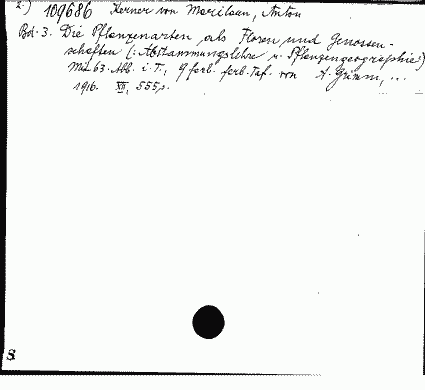 2.) 109686 Kerner von Marilaun, Anton
Bd. 3. Die Pflanzenarten als Floren und Genossen-
schaften (: Abstammungslehre u. Pflanzengeographie :)
Mit 63 Abb. i. T., 9 farb. Taf. von A. Grimm, ...
1916. XII, 555 p.
S.